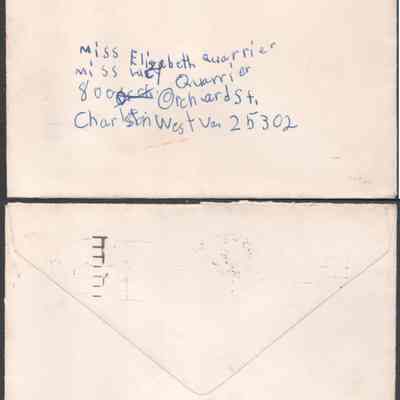 Miss Elizabeth Quarrier
miss Quarrier
800 Orchard St,
Charlston West Va 25302